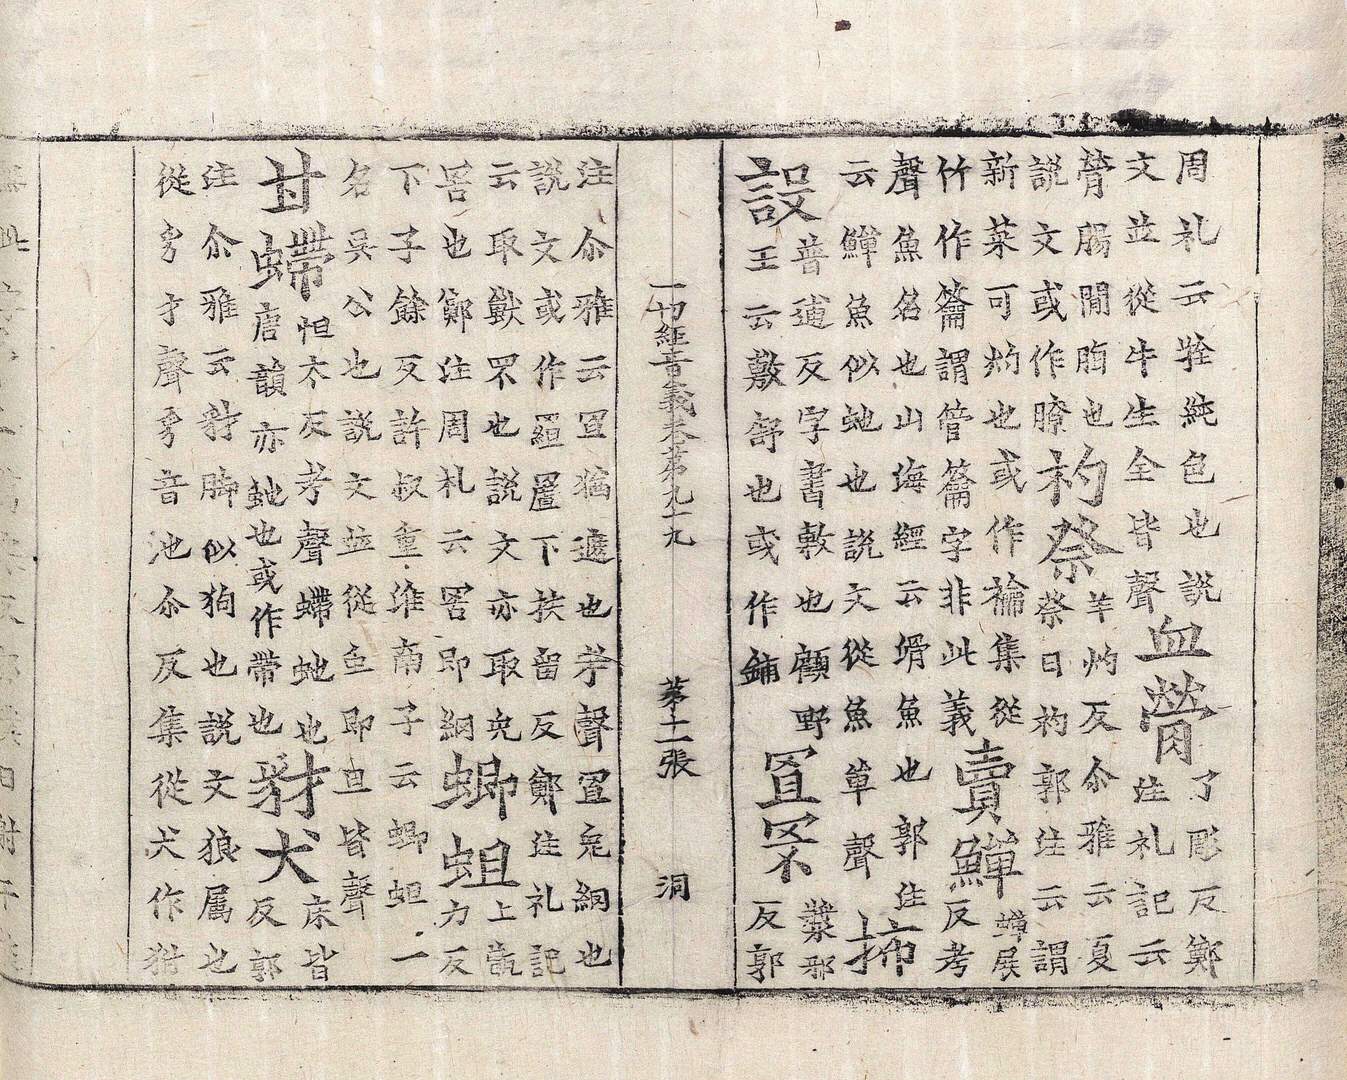 周礼云牷純色也說
文並從牛生全皆聲
血膋
了彫反鄭
注礼記云
膋腸間脂也
說文或作膫
礿祭
羊灼反尒雅云夏
祭曰礿郭注云謂
新菜可汋也或作禴集從
竹作籥謂管籥字非此義
賣鱓
蟬展
反考
聲魚名也山海經云䱻魚也郭注
云鱓魚似虵也說文從魚單聲
抪
設
普逋反字書敷也顧野
王云敷舒也或作鋪
罝罘
邪
反郭
一切經音義卷第九十九 第十一張 洞
注尒雅云罝猶遮也考聲罝兔綱也
說文或作下扶留反鄭注礼記
云取獸罘也說文亦取兔
罟也鄭注周札云罟即網
蝍蛆
上
力反
下子餘反許叔重淮南子云蝍蛆一
名吳公也說文並從虫即且皆聲
甘䗖
怛太反考聲䗖虵也
唐韻亦虵也或作帶也
豺犬
床皆
反郭
注尒雅云豺脚似狗也說文狼屬也
從豸才聲豸音池尒反集從犬作犲